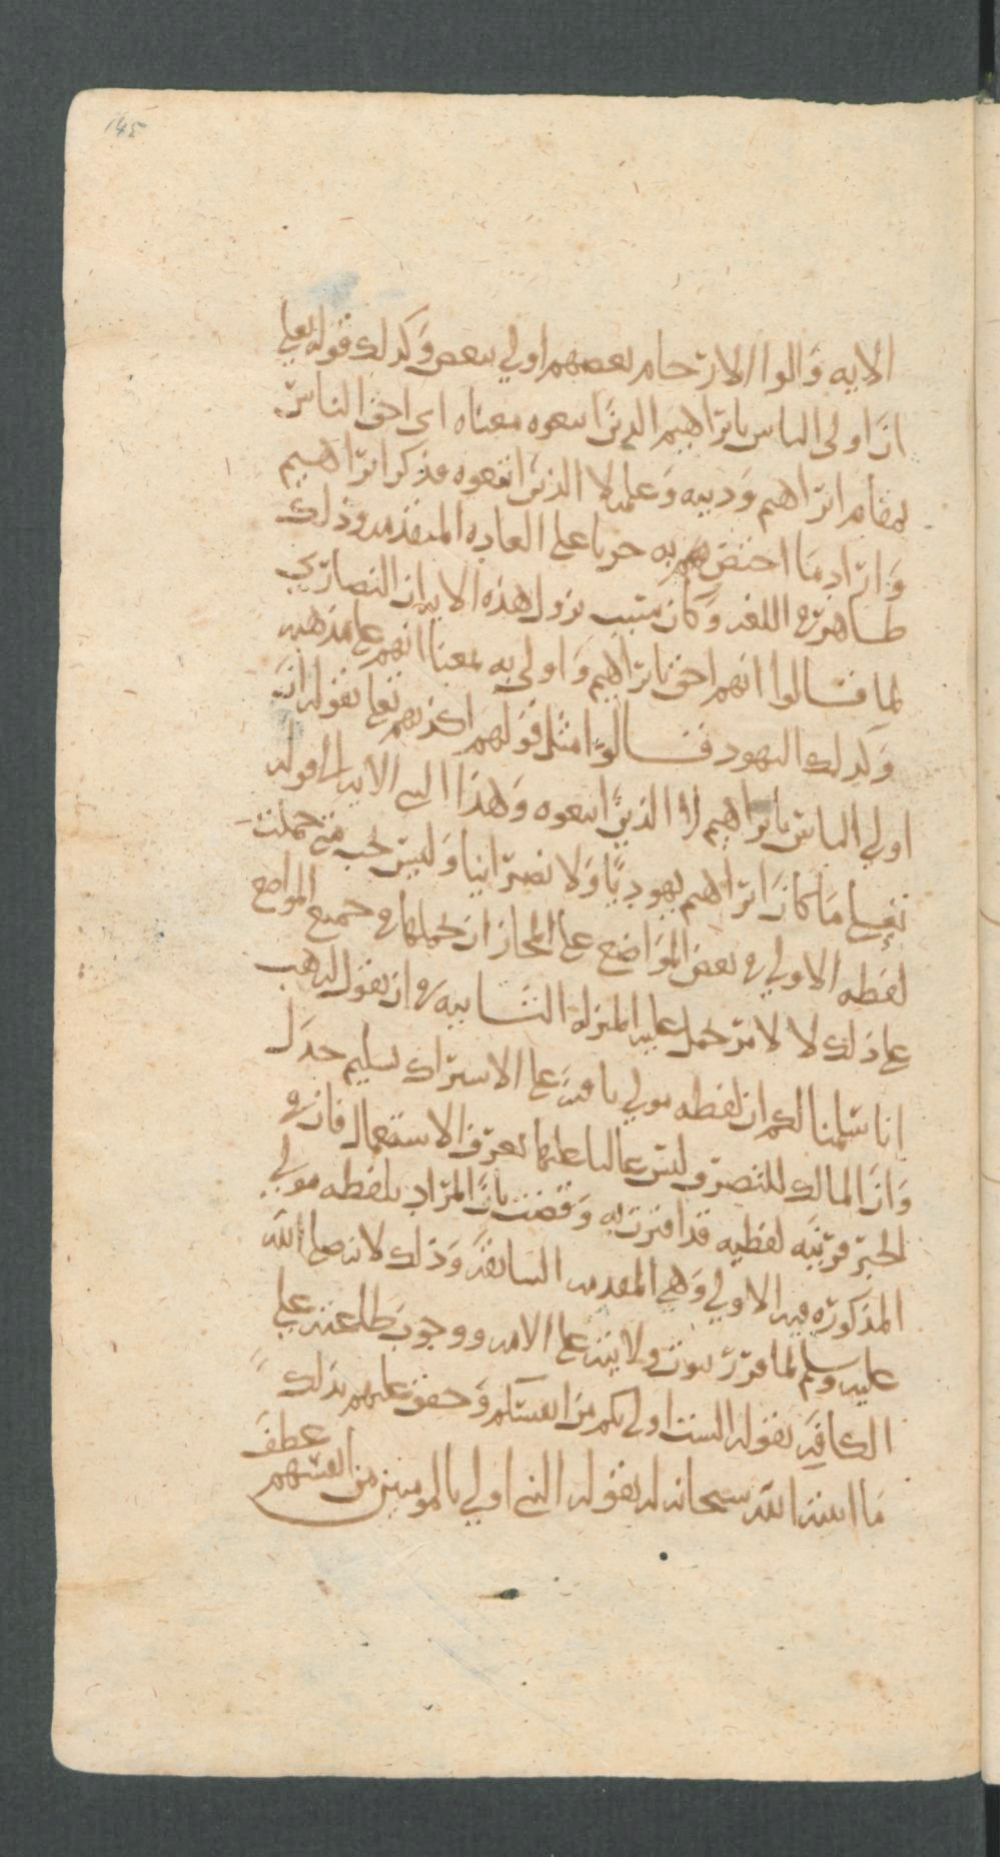 145
الايه وَالوا الارحام بعضهم اولي ببعض وَكذلك قوله تعلى
ان اولى الناس بابراهيم الذين اتبعوه معناه اي احق الناس
بمقام ابراهيم وَدينه وَعلمه الا الذين اتبعوه فذكر ابراهيم
وَاراد ما اختص بهم به جريا على العاده المتقدمه وذلك
ظاهر في اللغه وَكان سبب نزول هذه الايه ان النصارى
لما قالوا انهم احق بابراهيم وَاولى به بمعنا انهم على مذهبه
وَكذلك اليهود قالوا مثل قولهم اكذبهم تعلى بقوله ان
اولي الناس بابراهيم للذين اتبعوه وَهذا النبى الايه الى قوله
تعلى ما كان ابراهيم يهوديا وَلا نصرانيا وَليس يجب متى حملت
لفظه الاولى في بعض المواضع على المجاز ان نحملها في جميع المواضع
على ذلك لا لامر حمل عليه المنزله الثانيه في ان نقول لهب
انا سلمنا لكم ان لفظه مولى باقيه على الاشتراك تسليم جدل
وَان المالك للتصرف ليس غالبا عليها بعرف الاستعمال فان في
الخبر قرينه لفظيه قد اقترنت به وَقضت بان المراد بلفظه مولى
المذكوره فيه الاولى وَهي المقدمه السابقه وَذلك لانه صلى الله
عليه وسلم لما قرر ثبوت ولايته على الامه ووجوب طاعته على
الكافه بقوله الست اولى بكم من انفسكم وَحقق عليهم بذلك
ما اثبته الله سبحانه له بقوله النبي اولى بالمومنين من انفسهم
عطف